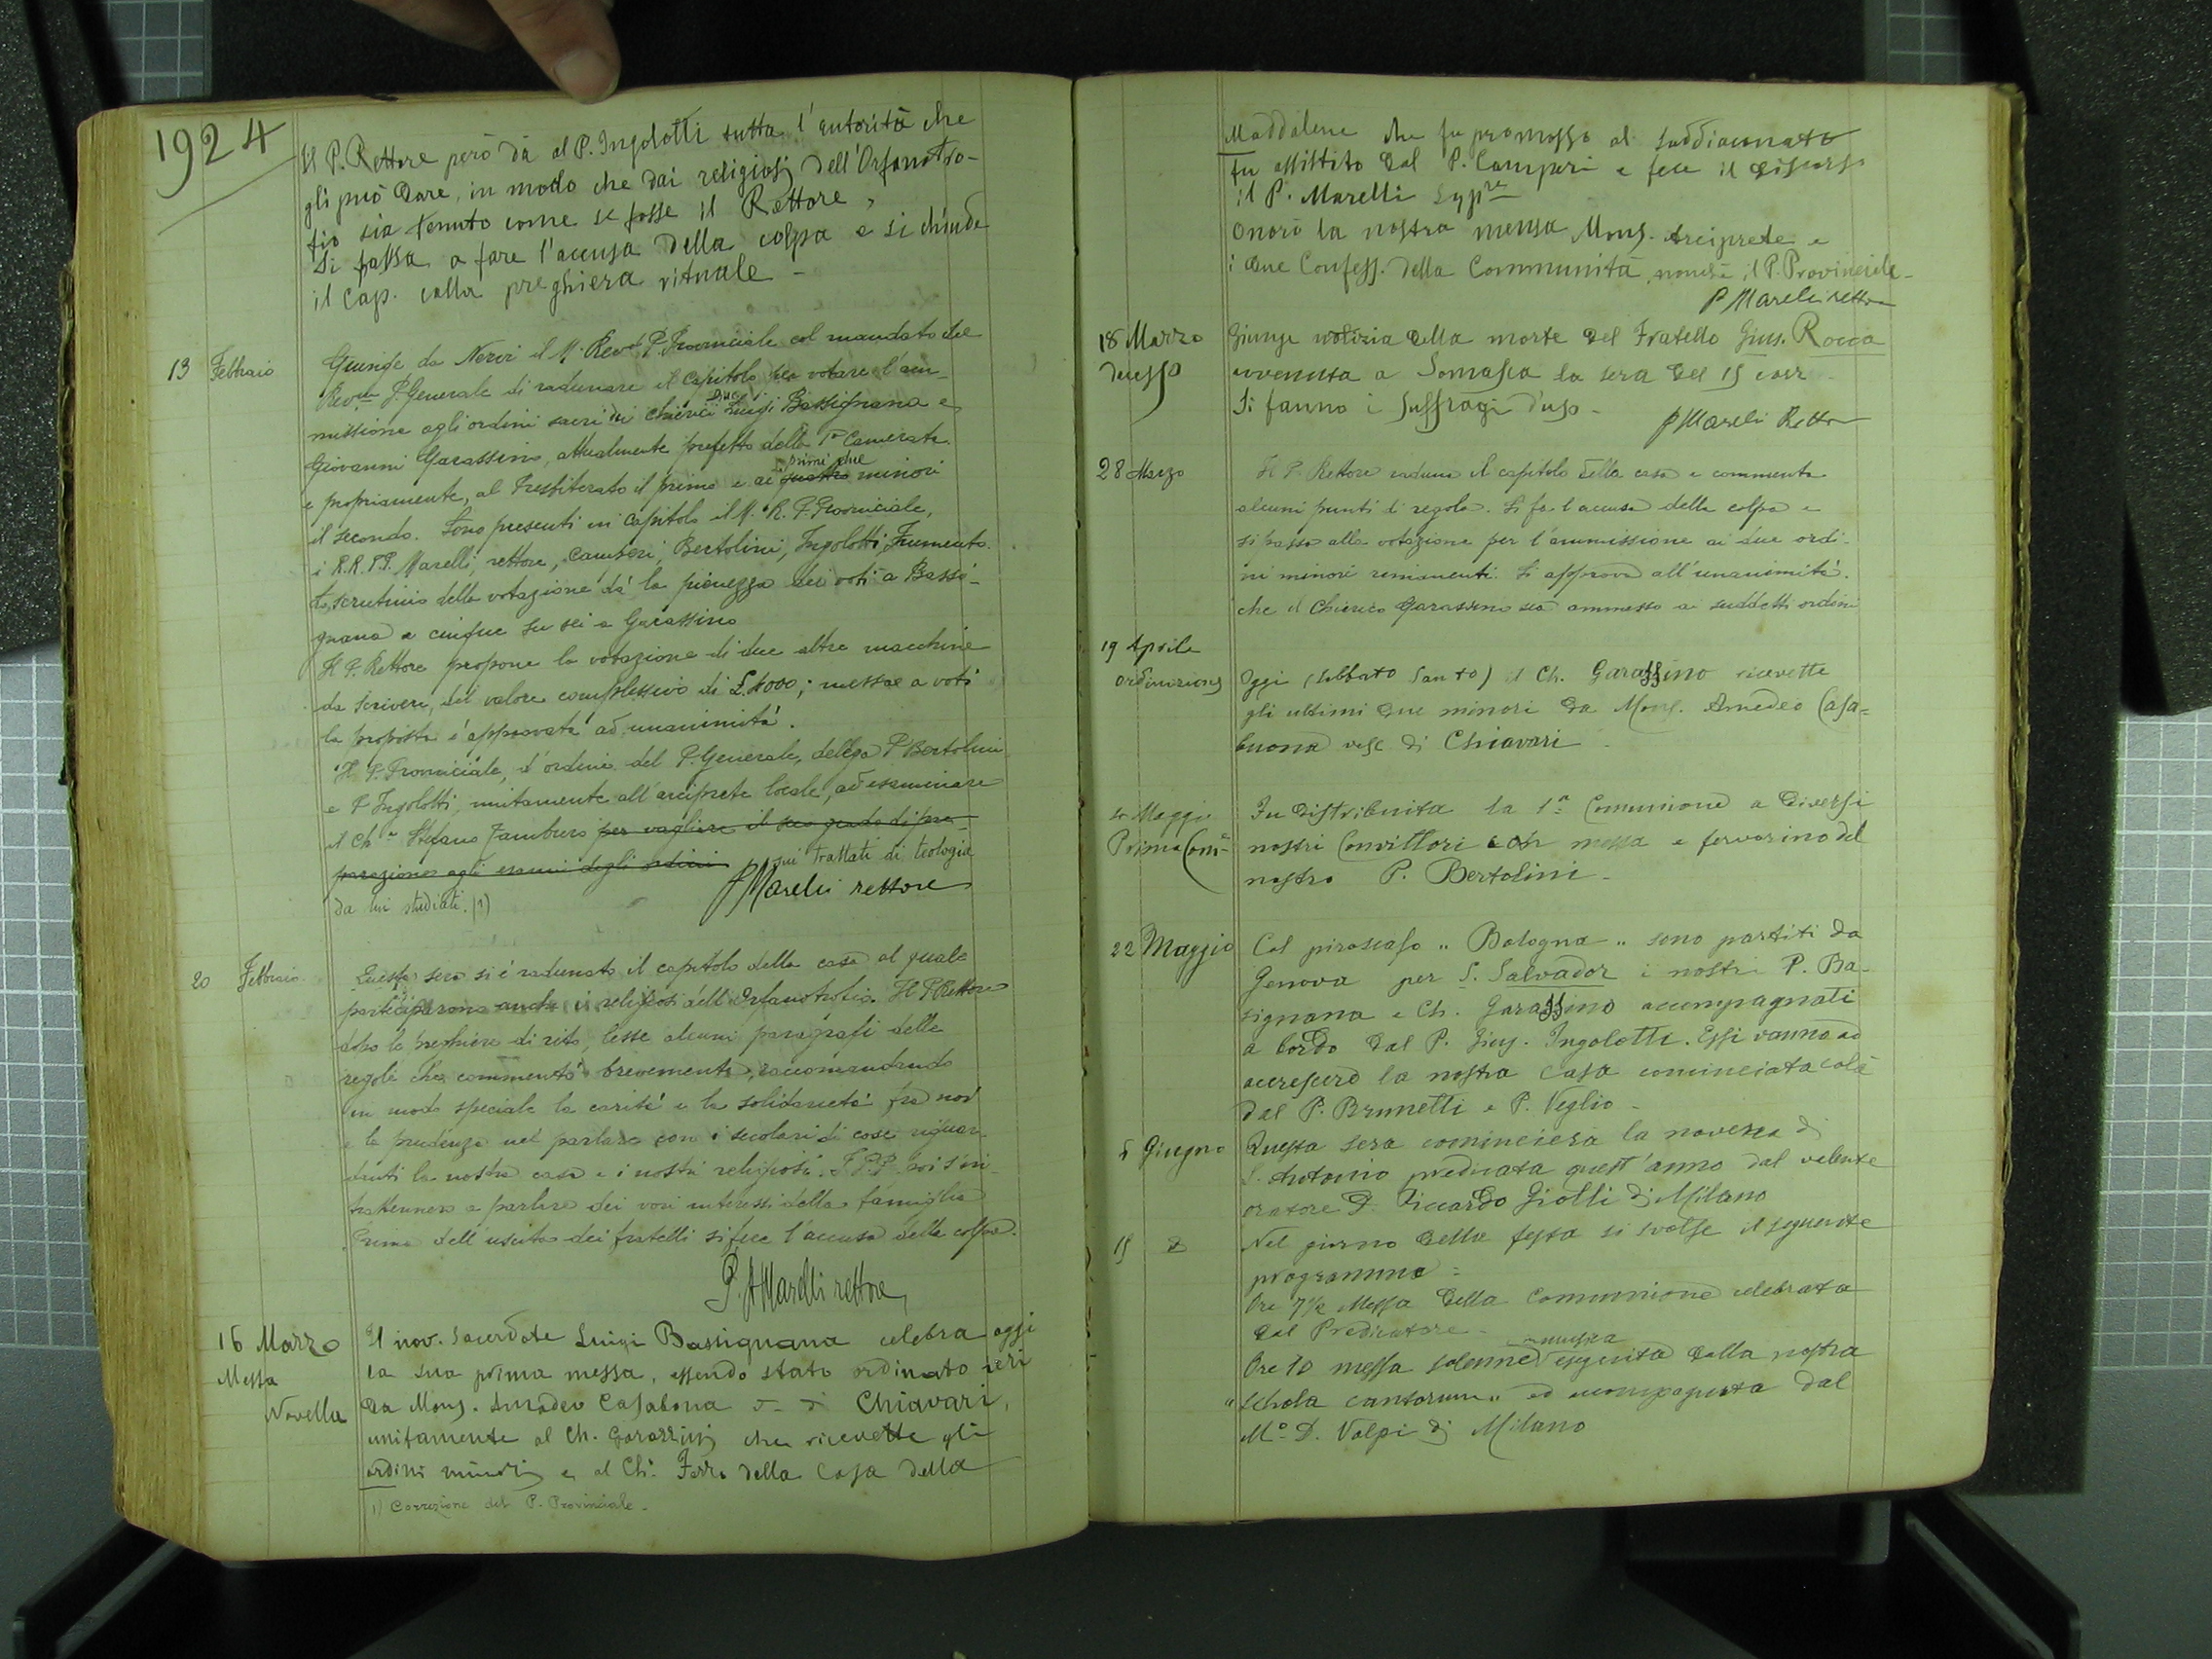 1924
Il P. Rettore però dà al P. Ingolotti tutta l'autorità che
gli può dare, in modo che dai religiosi dell'Orfanotro-
fio sia tenuto come se fosse il Rettore,
Si passa a fare l'accusa della colpa e si chiude
il Cap. colla preghiera rituale -
13 Febbraio
Giunge da Nervi il M. Rev. P. Provinciale col mandato del
Rev.mo P. Generale di radunare il Capitolo per votare l'am-
missione agli ordini sacri dei chierici Diac. Luigi Bassignana e
Giovanni Garassino, attualmente prefetto della 1ª Camerata.
e propriamente, al Presbiterato il primo e ai quattro primi due minori
il secondo. Sono presenti in Capitolo il M. R. P. Provinciale,
i R.R. P.P. Marelli, rettore, Camperi, Bertolini, Ingolotti, Frumento.
Lo scrutinio della votazione dà la pienezza dei voti a Bassi-
gnana e cinque su sei a Garassino
Il P. Rettore propone la votazione di due altre macchine
da scrivere, del valore complessivo di £. 4000; messa a voti
la proposta è approvata ad unanimità.
Il P. Provinciale, d'ordine del P. Generale, delega P. Bertolini
e P. Ingolotti, unitamente all'arciprete locale, ad esaminare
il Ch.º Stefano Tamburo per vagliare il suo grado di pre-
parazione agli esami degli ordini sui trattati di teologia
da lui studiati. (1)
P Marelli rettore
20 Febbraio
Questa sera si è radunato il capitolo della casa al quale
parteciparono anche i religiosi dell'Orfanotrofio. Il P. Rettore
dopo le preghiere di rito, lesse alcuni paragrafi delle
regole che commentò brevemente, raccomandando
in modo speciale la carità e la solidarietà fra noi
e la prudenza nel parlare con i secolari di cose riguar-
danti la nostra casa e i nostri religiosi. I P.P. poi s'in-
trattennero a parlare dei vari interessi della famiglia
Prima dell'uscita dei fratelli si fece l'accusa della colpa.
P. A Marelli rettore
16 Marzo
Messa
Novella
Il nov. Sacerdote Luigi Bassignana celebra oggi
la sua prima messa, essendo stato ordinato ieri
da Mons. Amadeo Casabona di Chiavari,
unitamente al Ch. Garassini che ricevette gli
ordini minori e al Ch. Ferro della Casa della
1) Correzione del P. Provinciale -
Maddalena che fu promosso al suddiaconato
Fu assistito dal P. Camperi e fece il discorso
il P. Marelli Sup.re
Onorò la nostra mensa Mons. Arciprete e
i due Confess. della Communità, nonchè il P. Provinciale -
P Marelli rettore
18 Marzo
decesso
Giunge notizia della morte del Fratello Gius. Rocca
avvenuta a Somasca la sera del 15 corr.
Si fanno i suffragi d'uso -
P Marelli Rettor
28 Marzo
Il P. Rettore raduna il capitolo della casa e commenta
alcuni punti di regola. Si fa l'accusa della colpa e
si passa alla votazione per l'ammissione ai due ordi-
ni minori rimanenti. Si approva all'unanimità.
che il Chierico Garassino sia ammesso ai suddetti ordini
19 Aprile
ordinazione
Oggi (Sabbato Santo) il Ch. Garassino ricevette
gli ultimi due minori da Mons. Amedeo Casa=
buona vesc. di Chiavari.
Maggio
Prima Com.
Fu distribuita la 1ª Comunione a diversi
nostri Convittori con messa e fervorino del
nostro P. Bertolini -
22 Maggio
Col piroscafo "Bologna" sono partiti da
Genova per S. Salvador i nostri P. Ba-
signana e Ch. Garassino accompagnati
a bordo dal P. Gius. Ingolotti. Essi vanno ad
accrescere la nostra casa cominciata colà
dal P. Brunetti e P. Veglio -
5 Giugno
Questa sera comincierà la novena di
S. Antonio predicata quest'anno dal valente
oratore D. Riccardo Giolli di Milano
15
Nel giorno della festa si svolse il seguente
programma:
Ore 7 1/2 Messa della Comunione celebrata
dal Predicatore -
Ore 10 messa solenne musica eseguita dalla nostra
"Schola cantorum" ed accompagnata dal
M.º D. Volpi di Milano